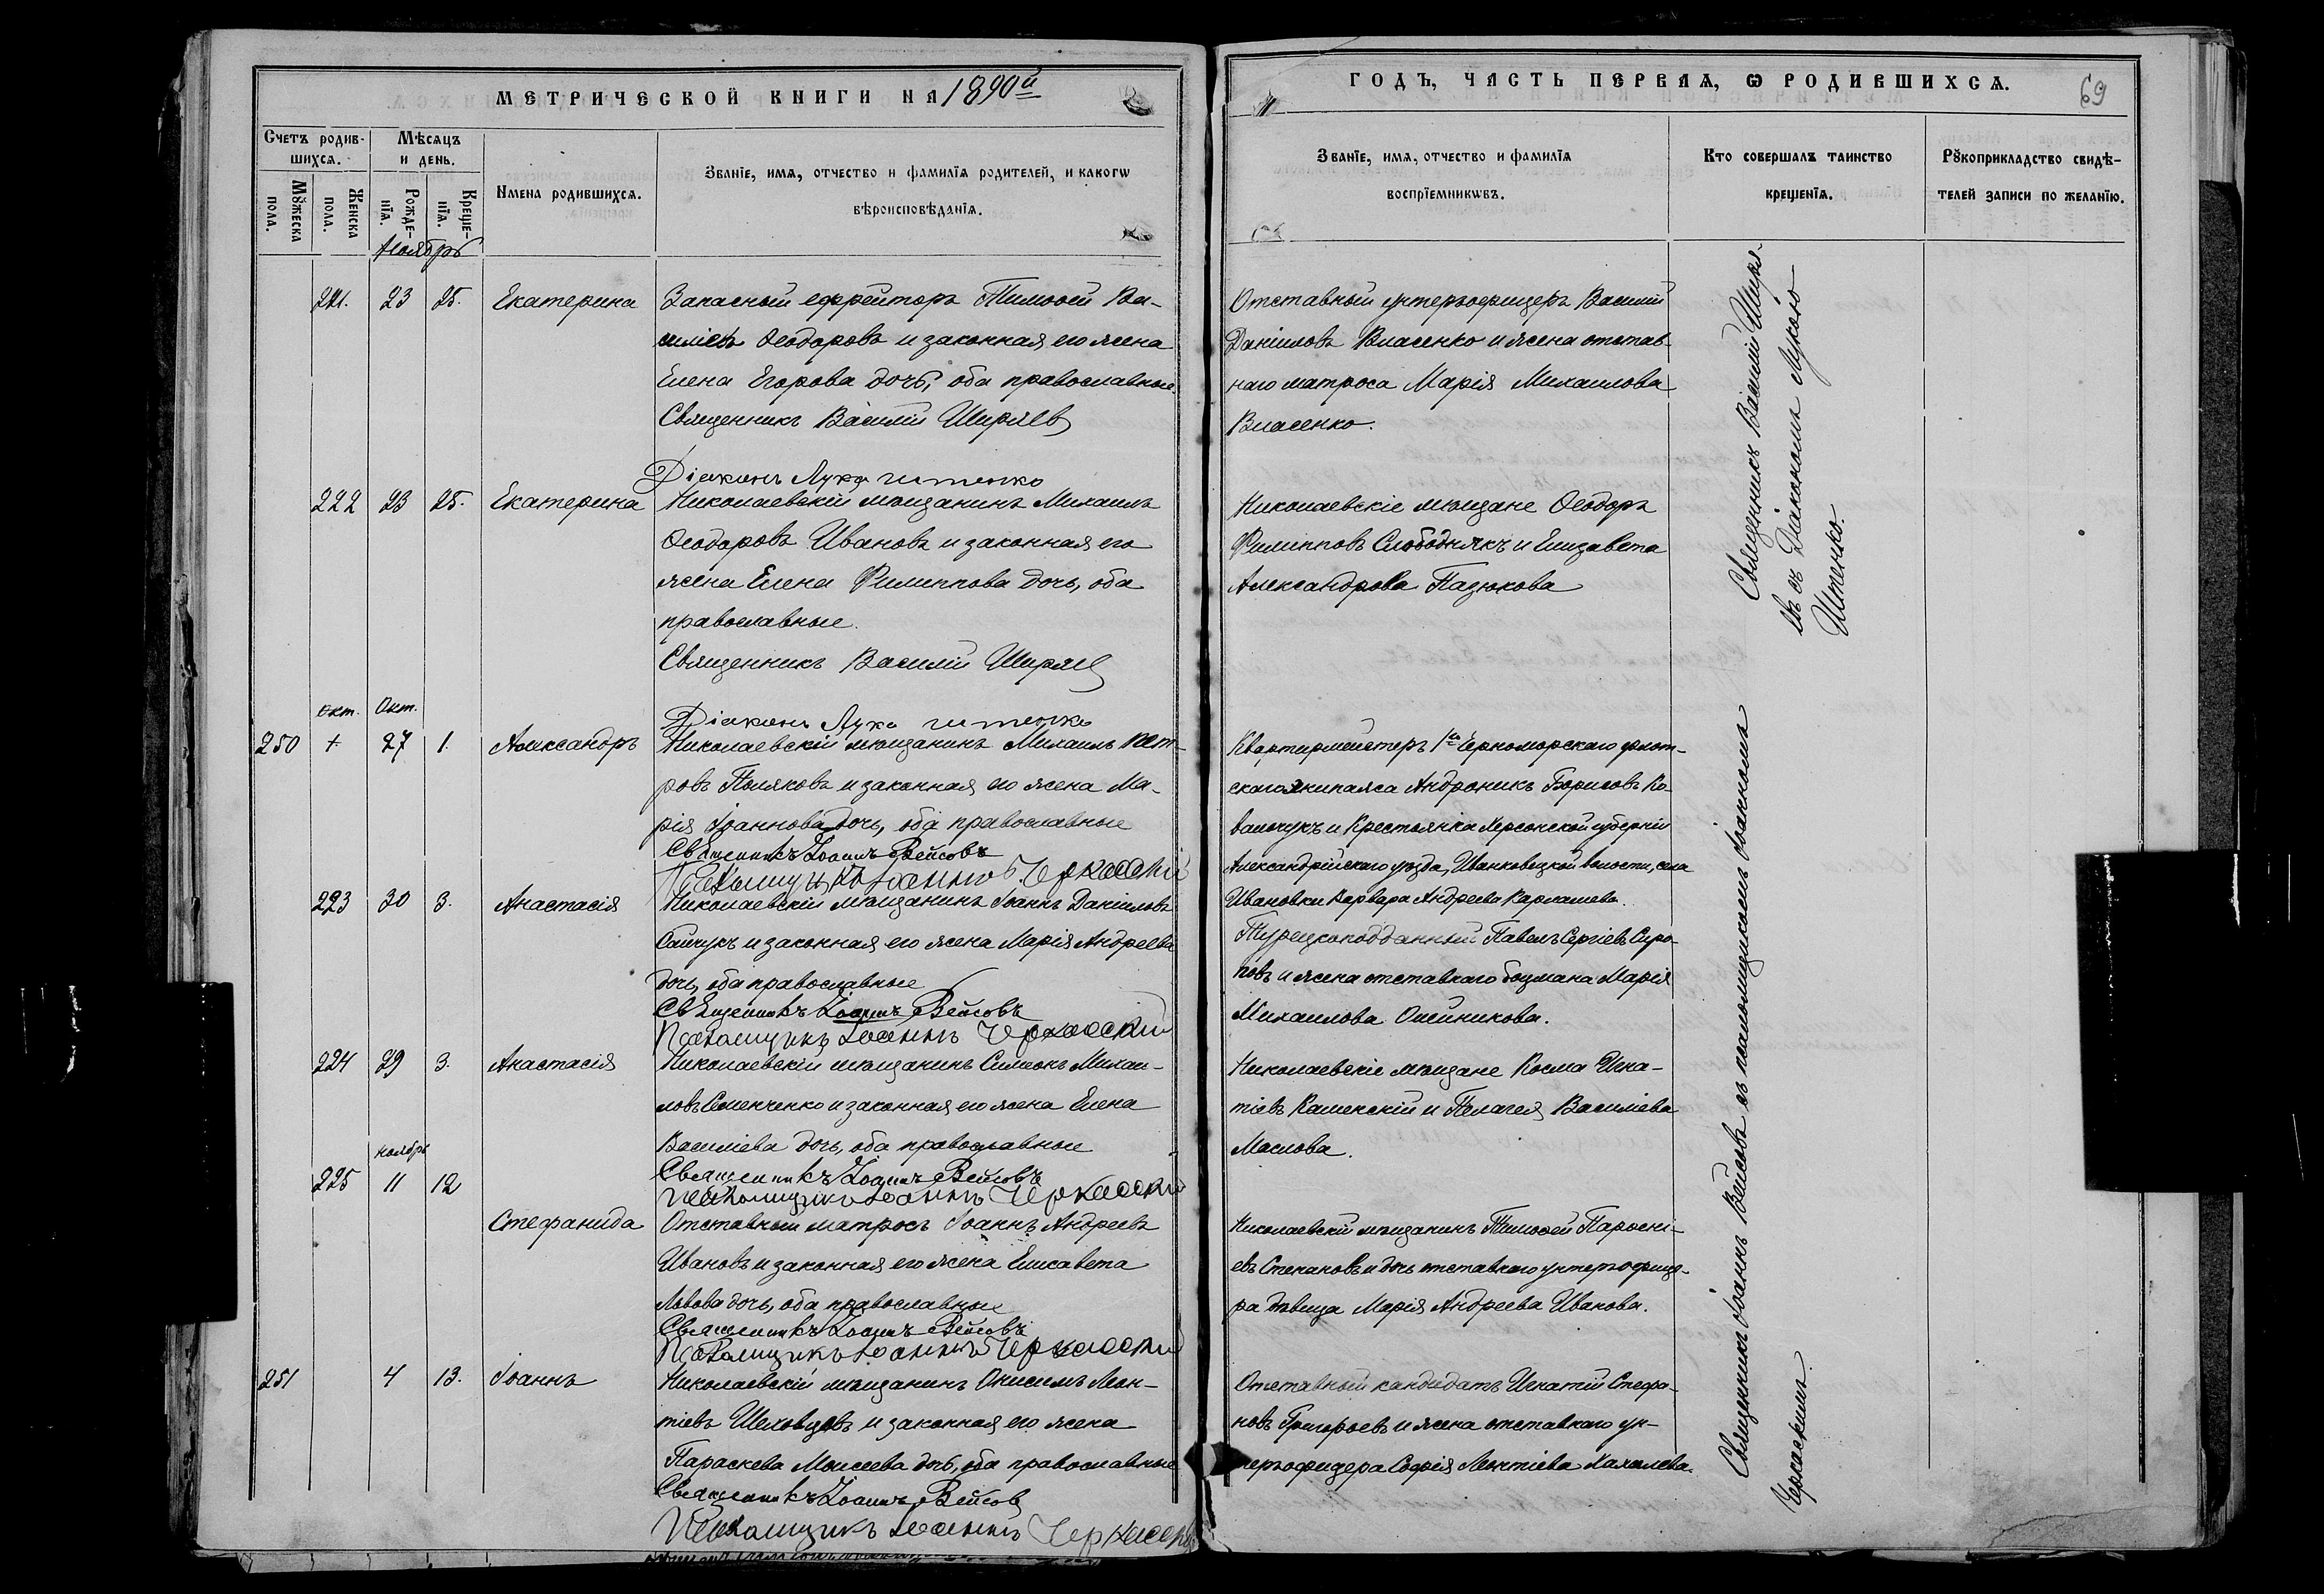 МЕТРИЧЕСКОЙ КНИГИ НА 1890й
ГОДЪ, ЧАСТЬ ПЕРВАЯ, Ѡ РОДИВШИХСЯ.
69
Счетъ родив-
шихся.
Мѣсяцъ
и день.
Мꙋжеска
пола.
Женска
пола.
Рожде-
нїя.
Креще-
нїя.
Имена родившихся.
Званїе, имя, отчество и фамилїя родителей, и какогѡ
вѣроисповѣданїя.
Званїе, имя, отчество и фамилїя
воспрїемникѡвъ.
Кто совершалъ таинство
крещенїя.
Рꙋкоприкладство свидѣ-
телей записи по желанїю.
Ноябрь
221. 23 25. Екатерина
Запасный ефрейторъ Тимоѳей Ва-
силіевъ Ѳеодоровъ и законная его жена
Елена Егорова дочь, оба православные.
Священникъ Василій Ширяевъ
Діаконъ Лука Итенко
Отставный унтеръофицеръ Василій
Даніиловъ Власенко и жена отстав-
наго матроса Марія Михаилова
Власенко.
222 23 25. Екатерина
Николаевскій мѣщанинъ Михаилъ
Ѳеодоровъ Ивановъ и законная его
жена Елена Филиппова дочь, оба
православные.
Священникъ Василій Ширяев
Діаконъ Лука Итенко
Николаевскіе мѣщане Ѳеодоръ
Филипповъ Слободнякъ и Елизавета
Александрова Пазюкова
Священникъ Василій Ширя-
евъ съ Діакономъ Лукою
Итенко.
окт. Окт.
250 + 27 1. Александръ
Николаевскій мѣщанинъ Михаилъ Пет-
ровъ Поляковъ и законная его жена Ма-
рія Іоаннова дочь, оба православные
Священникъ Іоаннъ Вейсовъ
Псаломщикъ Іоаннъ Черкасскій
Квартирмейстеръ 1го Черноморскаго флот-
скаго экипажа Андроникъ Борисовъ Ко-
вальчукъ и Крестьянка Херсонской губерніи
Александрійскаго уѣзда, волости, села
Ивановки Варвара Андреева
223 30 3. Анастасія
Николаевскій мѣщанинъ Іоаннъ Даніиловъ
и законная его жена Марія Андреева
дочь, оба православные
Священникъ Іоаннъ Вейсовъ
Псаломщикъ Іоаннъ Черкасскій
Турецкоподданный Павелъ Сергіевъ Сиро-
повъ и жена отставнаго боцмана Марія
Михаилова Олейникова.
224 29 3. Анастасія
Николаевскій мѣщанинъ Симеонъ Михаи-
ловъ Семенченко и законная его жена Елена
Василіева дочь, оба православные
Священникъ Іоаннъ Вейсовъ
Псаломщикъ Іоаннъ Черкасскій
Николаевскіе мѣщане Косма Игна-
тіевъ Каменскій и Пелагея Василіева
Маслова.
ноябрь
225 11 12
Стефанида
Отставный матросъ Іоаннъ Андреевъ
Ивановъ и законная его жена Елисавета
Львова дочь, оба православные
Священникъ Іоаннъ Вейсовъ
Псаломщикъ Іоаннъ Черкасскій
Николаевскій мѣщанинъ Тимоѳей Парѳені-
евъ Степановъ и дочь отставнаго унтеръофице-
ра дѣвица Марія Андреева Иванова.
251 4 13. Іоаннъ
Николаевскій мѣщанинъ Онисимъ Леон-
тіевъ Шеховцовъ и законная его жена
Параскева Моисеева дочь, оба православные
Священникъ Іоаннъ Вейсовъ
Псаломщикъ Іоаннъ Черкасскій
Отставный кандидатъ Игнатій Стефа-
новъ Григорьевъ и жена отставнаго ун-
теръофицера Софія Леонтіева Халилева.
Священникъ Іоаннъ Вейсовъ съ псаломщикомъ Іоанномъ
Черкаскимъ.